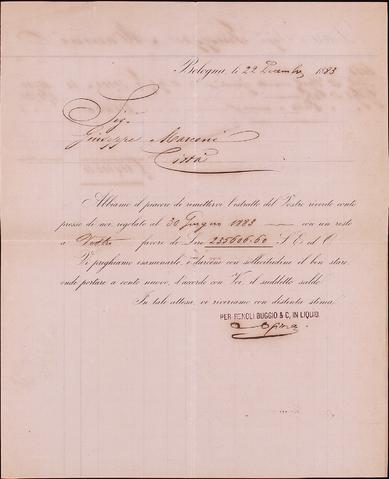 Bologna, li 22 Dicembre 1883
Sig.
Giuseppe Marconi
Città
Abbiamo il piacere di rimettervi l'estratto del Vostro ricordo conto
presso di noi, regolato al 30 Giugno 1883 con un resto
a Vostro favore di Lire 235606.60 S. E. ed O.
Vi preghiamo esaminarlo, e darcene con sollecitudine il ben stare,
onde portare a conto nuovo, d'accordo con Voi, il suddetto saldo.
In tale attesa, vi riveriamo con distinta stima.
PER RENOLI BUGGIO & C, IN LIQUID.